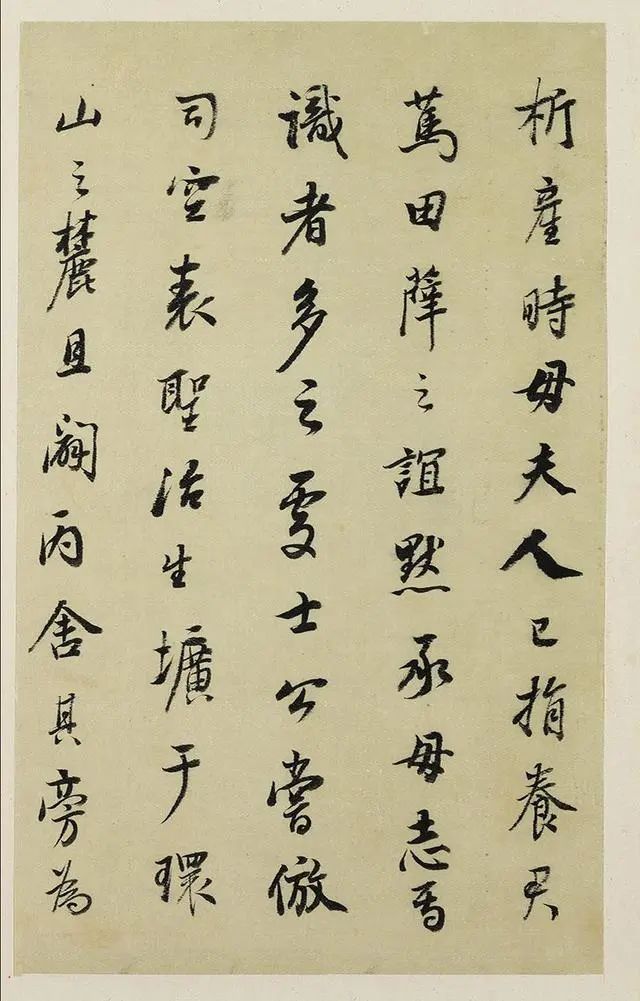 析產時母夫人已捐養君
篤田薛之誼默承母志焉
識者多之處士公嘗倣
司空表聖治生壙于環
山之麓且闢丙舍其旁為